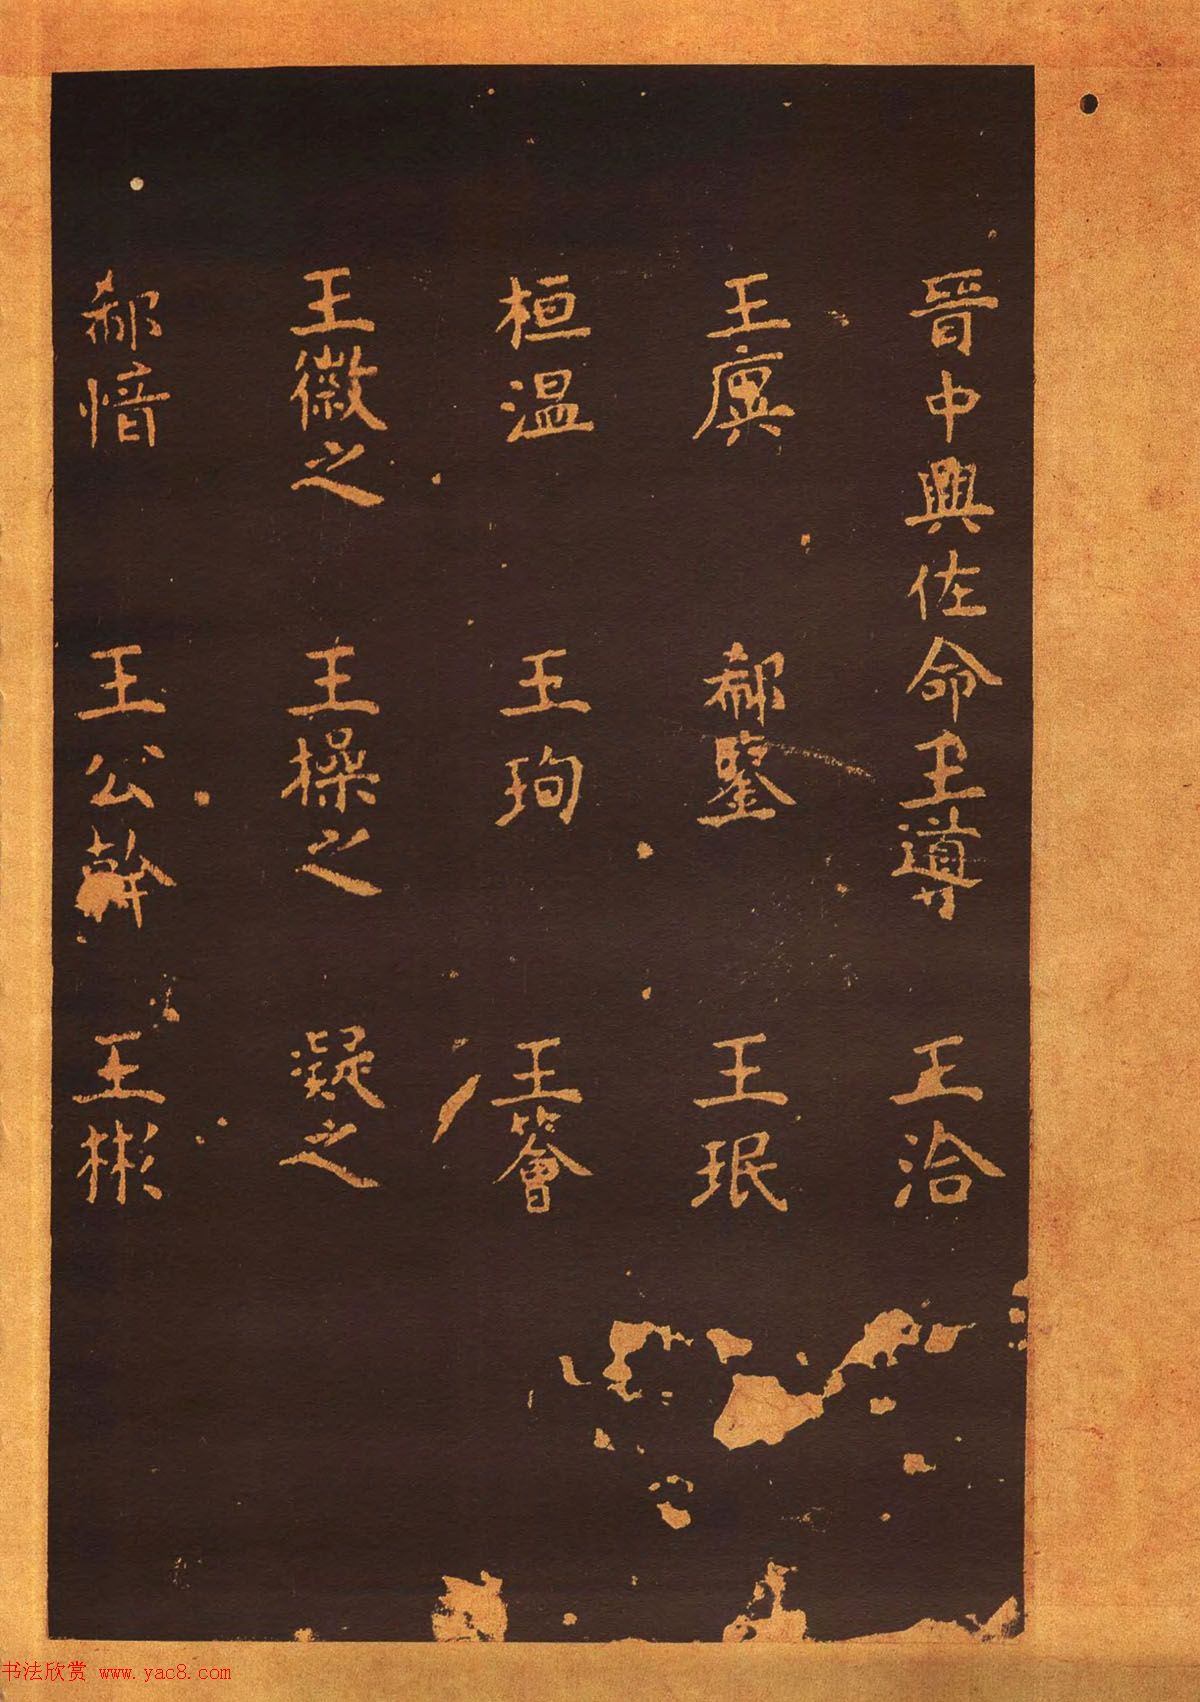 晉中興佐命王導 王洽
王廙 郗鑒 王珉
桓温 王珣 王薈
王徽之 王操之 凝之
郗愔 王公幹 王彬
书法欣赏 www.yac8.com